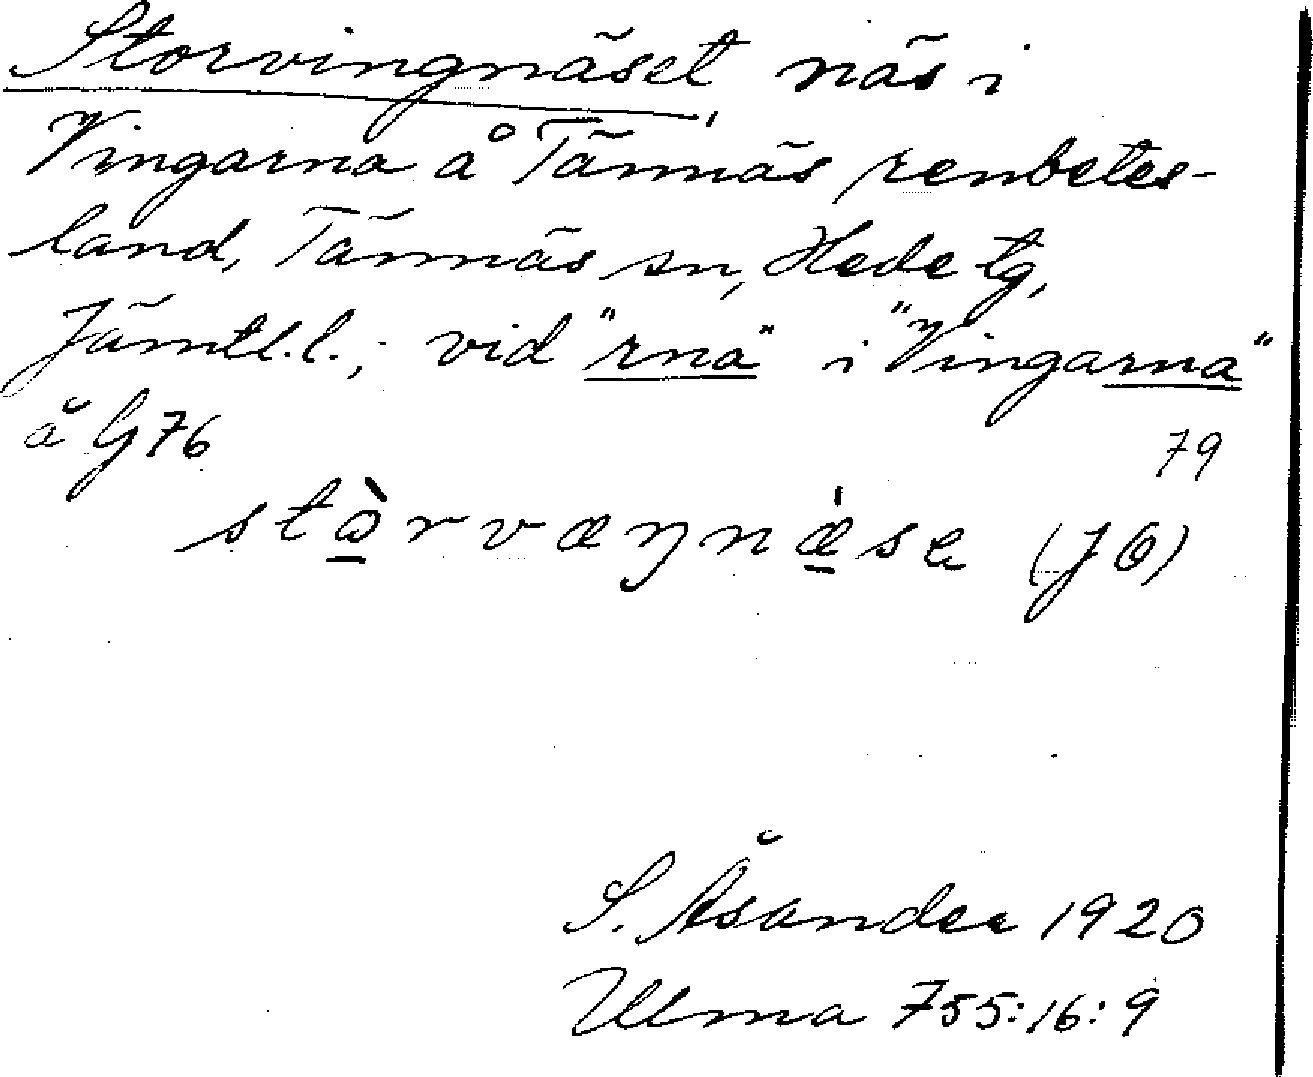 Storvingnäset, näs i
Vingarna å Tännäs renbetes-
land, Tännäs sn, Hede tg,
Jämtl.l.; vid "rna" i "Vingarna"
å G 76
79
stò̠rvæŋnæ̠̍se (JÖ)
S. Åsander 1920
Ulma 755:16:9